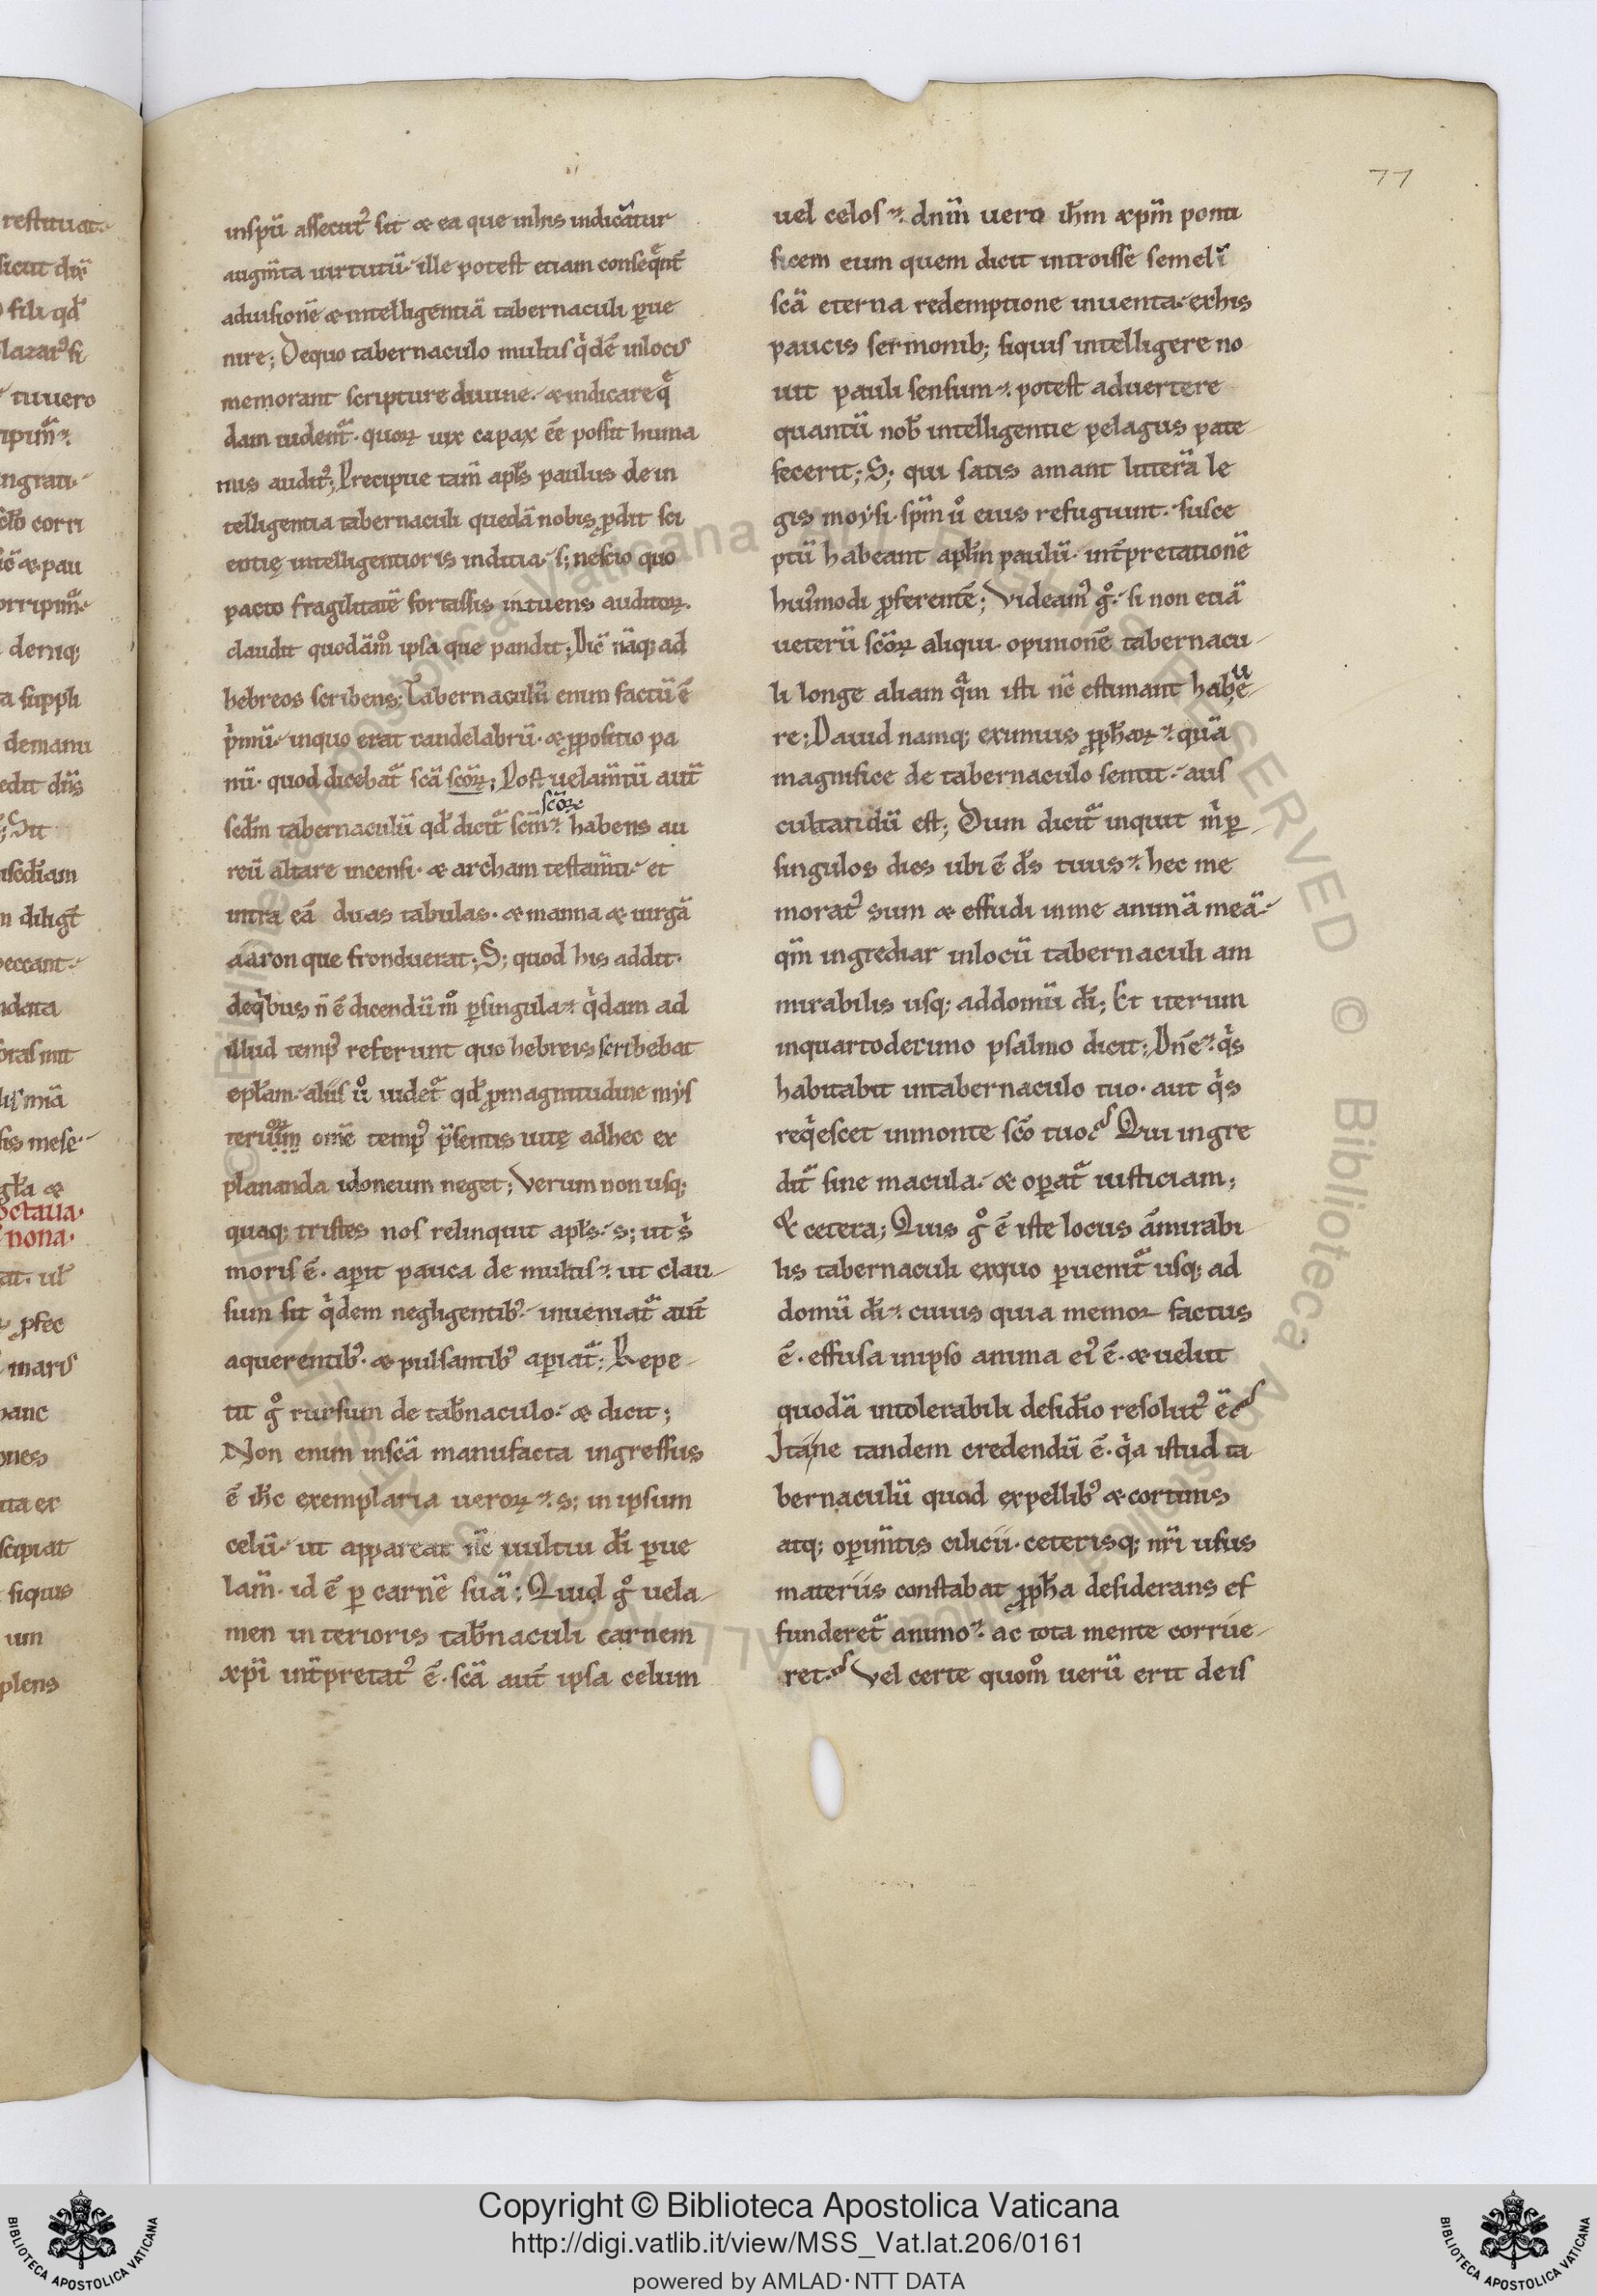 77
inspū assecut᷒ sit & ea que inhis indicātur
augm̄ta uirtutū ille potest etiam conseq̄nt̄
aduisionē & intelligentiā tabernaculi ꝑue
nire; Dequo tabernaculo multis qͥdē inlocis
memorant scripture diuine & indicare qͣ
dam uident᷑· quoꝝ uix capax ēē possit huma
nus audit᷒; Precipue tam̄ apl̄s paulus de in
telligentia tabernaculi quedā nobis ꝓdit sci
entię intelligentioris inditia s; nescio quo
pacto fragilitatē fortassis intuens auditoꝝ.
claudit quodāmͦ ipsa que pandit; Dic̄ nāq; ad
hebreos scribens; Tabernaculū enim factū ē
pͥmū inquo erat candelabrū· & ꝓpositio pa
nū· quod dicebat᷑ scā scōꝝ; Post uelam̄tū aut̄
scōꝝ
scd̄m tabernaculū qd̄ dicit᷑ scm̄ habens au
reū altare incensi· & archam testam̄ti et
intra eā duas tabulas· & manna & uirgā
aaron que fronduerat; S; quod his addit·
deqͥbus n̄ ē dicendū mͦ ꝑsingula qͥdam ad
illud temp᷒ referunt quo hebreis scribebat
epl̄am aliis uͦ uidet᷑ qd̄ ꝓmagnitudine mẏs
terioꝝ om̄e temp᷒ p̄sentis uitę adhec ex
plananda idoneum neget; Verum non usq;
quaq; tristes nos relinquit apl̄s s; ut sͥ
moris ē· aꝑit pauca de multis ut clau
sum sit qͥdem negligentib᷒ inueniat᷑ aut̄
aquerentib᷒· & pulsantib᷒ aꝑiat᷑; Repe
tit gͦ rursum de tab̄naculo & dicit;
Non enim inscā manufacta ingressus
ē ih̄c exemplaria ueroꝝ s; in ipsum
celū ut appareat nc̄ uultui dī ꝑue
lam̄· id ē ꝑ carnē suā; Quid gͦ uela
men interioris tab̄naculi carnem
xp̄i int̄pretat᷒ ē· scā aut̄ ipsa celum
uel celos dnm̄ uero ih̄m xp̄m ponti
ficem eum quem dicit introisse semel ī
scā eterna redemptione inuenta exhis
paucis sermonib; siquis intelligere no
uit pauli sensum potest aduertere
quantū nob̄ intelligentie pelagus pate
fecerit; S; qui satis amant litterā le
gis moẏsi· sp̄m uͦ eius refugiunt· susce
ptū habeant apl̄m paulū int̄pretationē
hui᷒modi ꝓferentē; Videam᷒ gͦ si non etiā
ueterū scōꝝ aliqui opinionē tabernacu
li longe aliam qͣm isti nc̄ estimant habue
re; Dauid namq; eximius ꝓph̄aꝝ quā
magnifice de tabernaculo sentit aus
cultandū est; Dum dicit᷑ inquit mͥ ꝑ
singulos dies ubi ē d̄s tuus hec me
morat᷒ sum & effudi inme animā meā
qm̄ ingrediar inlocū tabernaculi am
mirabilis usq; addomū dī; Et iterum
inquartodecimo psalmo dicit; Dn̄e qͥs
habitabit intabernaculo tuo· aut qͥs
reqͥescet inmonte scō tuo? Qui ingre
dit᷑ sine macula & oꝑat᷑ iusticiam;
& cetera; Quis gͦ ē iste locus āmirabi
lis tabernaculi exquo ꝑuenit᷑ usq; ad
domū dī cuius quia memor factus
ē· effusa inipso anima ei᷒ ē· & uelut
quodā intolerabili desid̄io resolut᷒ ē?
Itane tandem credendū ē· qͥa istud ta
bernaculū quod expellib᷒ & cortinis
atq; oꝑim̄tis cilicii· ceterisq; nr̄i usus
materiis constabat ꝓph̄a desiderans ef
funderet᷑ animo ac tota mente corrue
ret? Vel certe quomͦ uerū erit deis
restituat
sicut dix̄
fili qd̄
tu uero
ngrati
corri
& pau
orripim᷑
deniq;
a suppli
demanu
edit dn̄s
Sit
n diligt̄
peccant
ndata
mīa
sis mese
gl̄a &
octaua·
nona·
maris
hanc
ones
ita ex
scipiat
siquis
um
plens
Copyright © Biblioteca Apostolica Vaticana
http://digi.vatlib.it/view/MSS_Vat.lat.206/0161
powered by AMLAD·NTT DATA
BIBLIOTECA APOSTOLICA VATICANA
BIBLIOTECA APOSTOLICA VATICANA